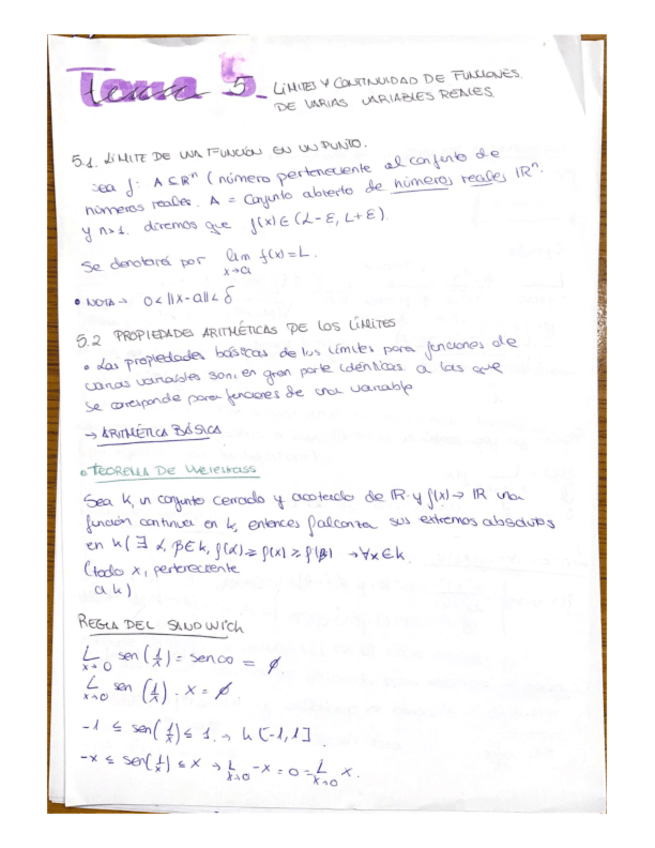 Tema 5.
LÍMITES Y CONTINUIDAD DE FUNCIONES
DE VARIAS VARIABLES REALES.
5.1. LÍMITE DE UNA FUNCIÓN EN UN PUNTO.
Sea f: A ⊆ Rⁿ (número perteneciente al conjunto de
números reales. A = Conjunto abierto de números reales IRⁿ.
y n>1. diremos que f(x) ∈ (L-ε, L+ε).
Se denotará por lim f(x) = L.
x→a
• NOTA → 0 < ||x-a|| < δ
5.2 PROPIEDADES ARITMÉTICAS DE LOS LÍMITES
• Las propiedades básicas de los límites para funciones de
varias variables son, en gran parte idénticas a las que
se corresponde para funciones de una variable
→ ARITMÉTICA BÁSICA
• TEOREMA DE Weierstrass
Sea k, un conjunto cerrado y acotado de IR y f(x) → IR una
función continua en k, entonces f alcanza sus extremos absolutos
en k (∃ α, β ∈ k, f(α) ≥ f(x) ≥ f(β) → ∀x ∈ k.
(todo x, perteneciente
a k)
REGLA DEL SANDWich
L sen (1/x) = sen ∞ = ∅
x→0
L sen (1/x) · x = ∅.
x→0
-1 ≤ sen(1/x) ≤ 1. → k [-1,1]
-x ≤ sen(1/x) ≤ x → L -x = 0 = L x.
x→0 x→0